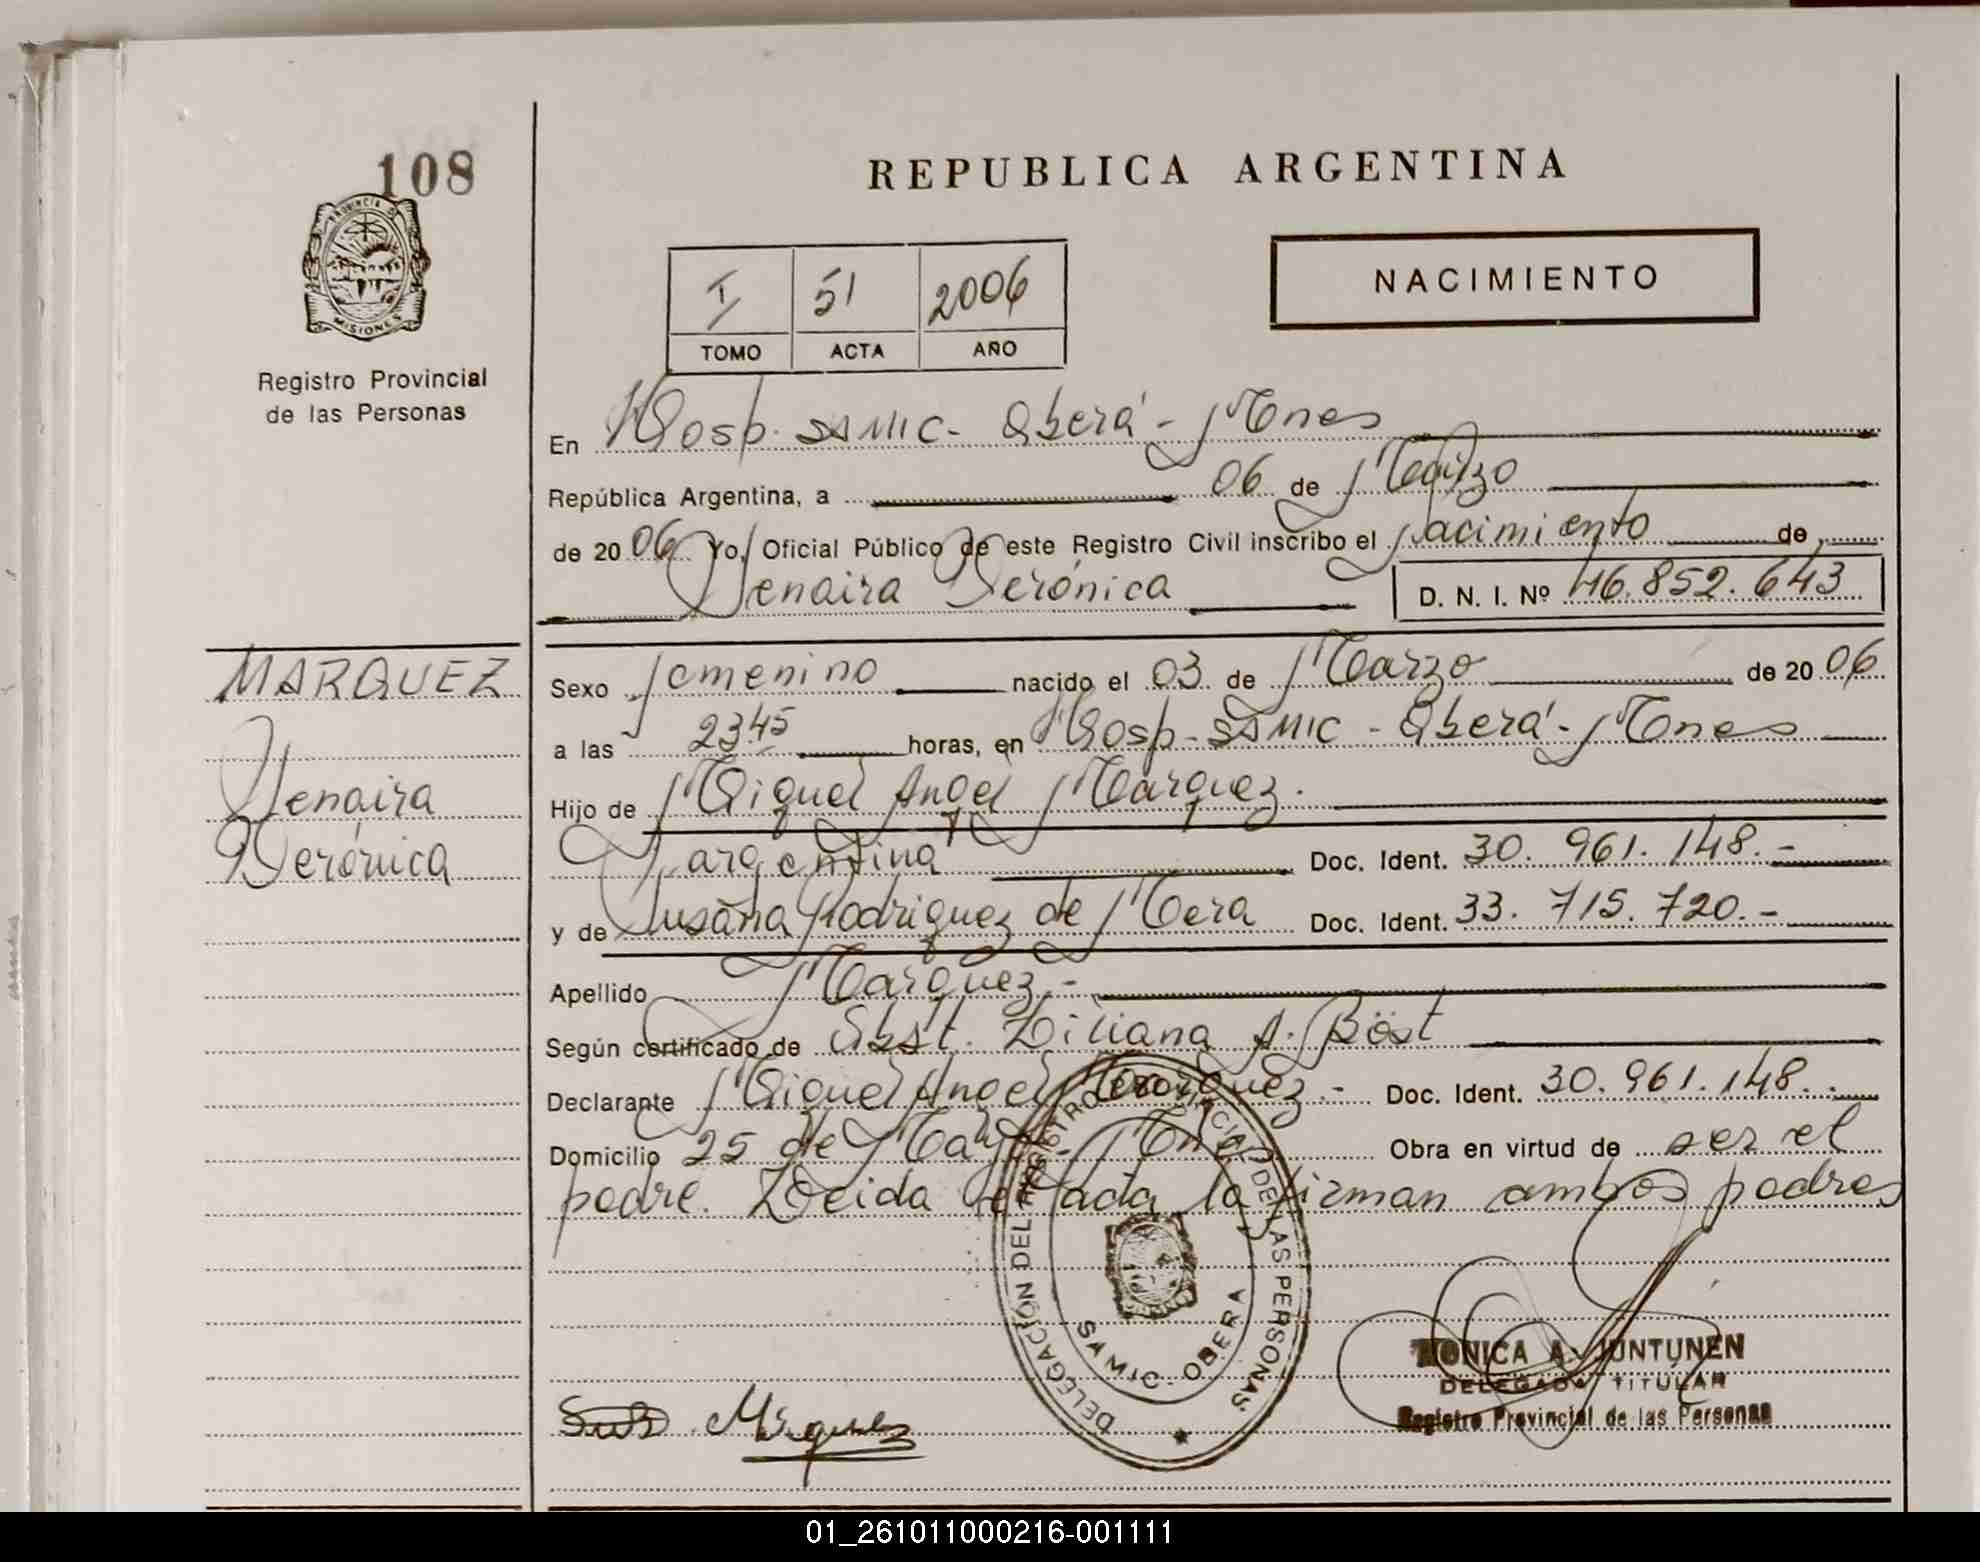 108
PROVINCIA DE
MISIONES
Registro Provincial
de las Personas
REPUBLICA ARGENTINA
NACIMIENTO
I 51 2006
TOMO ACTA AÑO
En Hosp. SAMIC - Oberá - Mnes
República Argentina, a 06 de Marzo
de 2006 Yo, Oficial Público de este Registro Civil inscribo el Nacimiento de
Yenaira Verónica D. N. I. Nº 46.852.643
MARQUEZ
Yenaira
Verónica
Sexo Femenino nacido el 03 de Marzo de 2006
a las 2345 horas, en Hosp - SAMIC - Oberá - Mnes
Hijo de Miguel Angel Márquez.
Argentina Doc. Ident. 30. 961. 148.-
y de Susana Rodriguez de Mera Doc. Ident. 33. 715. 720.-
Apellido Márquez.-
Según certificado de Obst. Liliana A. Böst
Declarante Miguel Angel Márquez.- Doc. Ident. 30.961.148.-
Domicilio 25 de Mayo - Mnes Obra en virtud de ser el
padre. Leida el acta, la firman ambos padres
DELEGACIÓN DEL REGISTRO PROVINCIAL DE LAS PERSONAS
SAMIC - OBERA
MONICA A. JUNTUNEN
DELEGADA TITULAR
Registro Provincial de las Personas
01_261011000216-001111